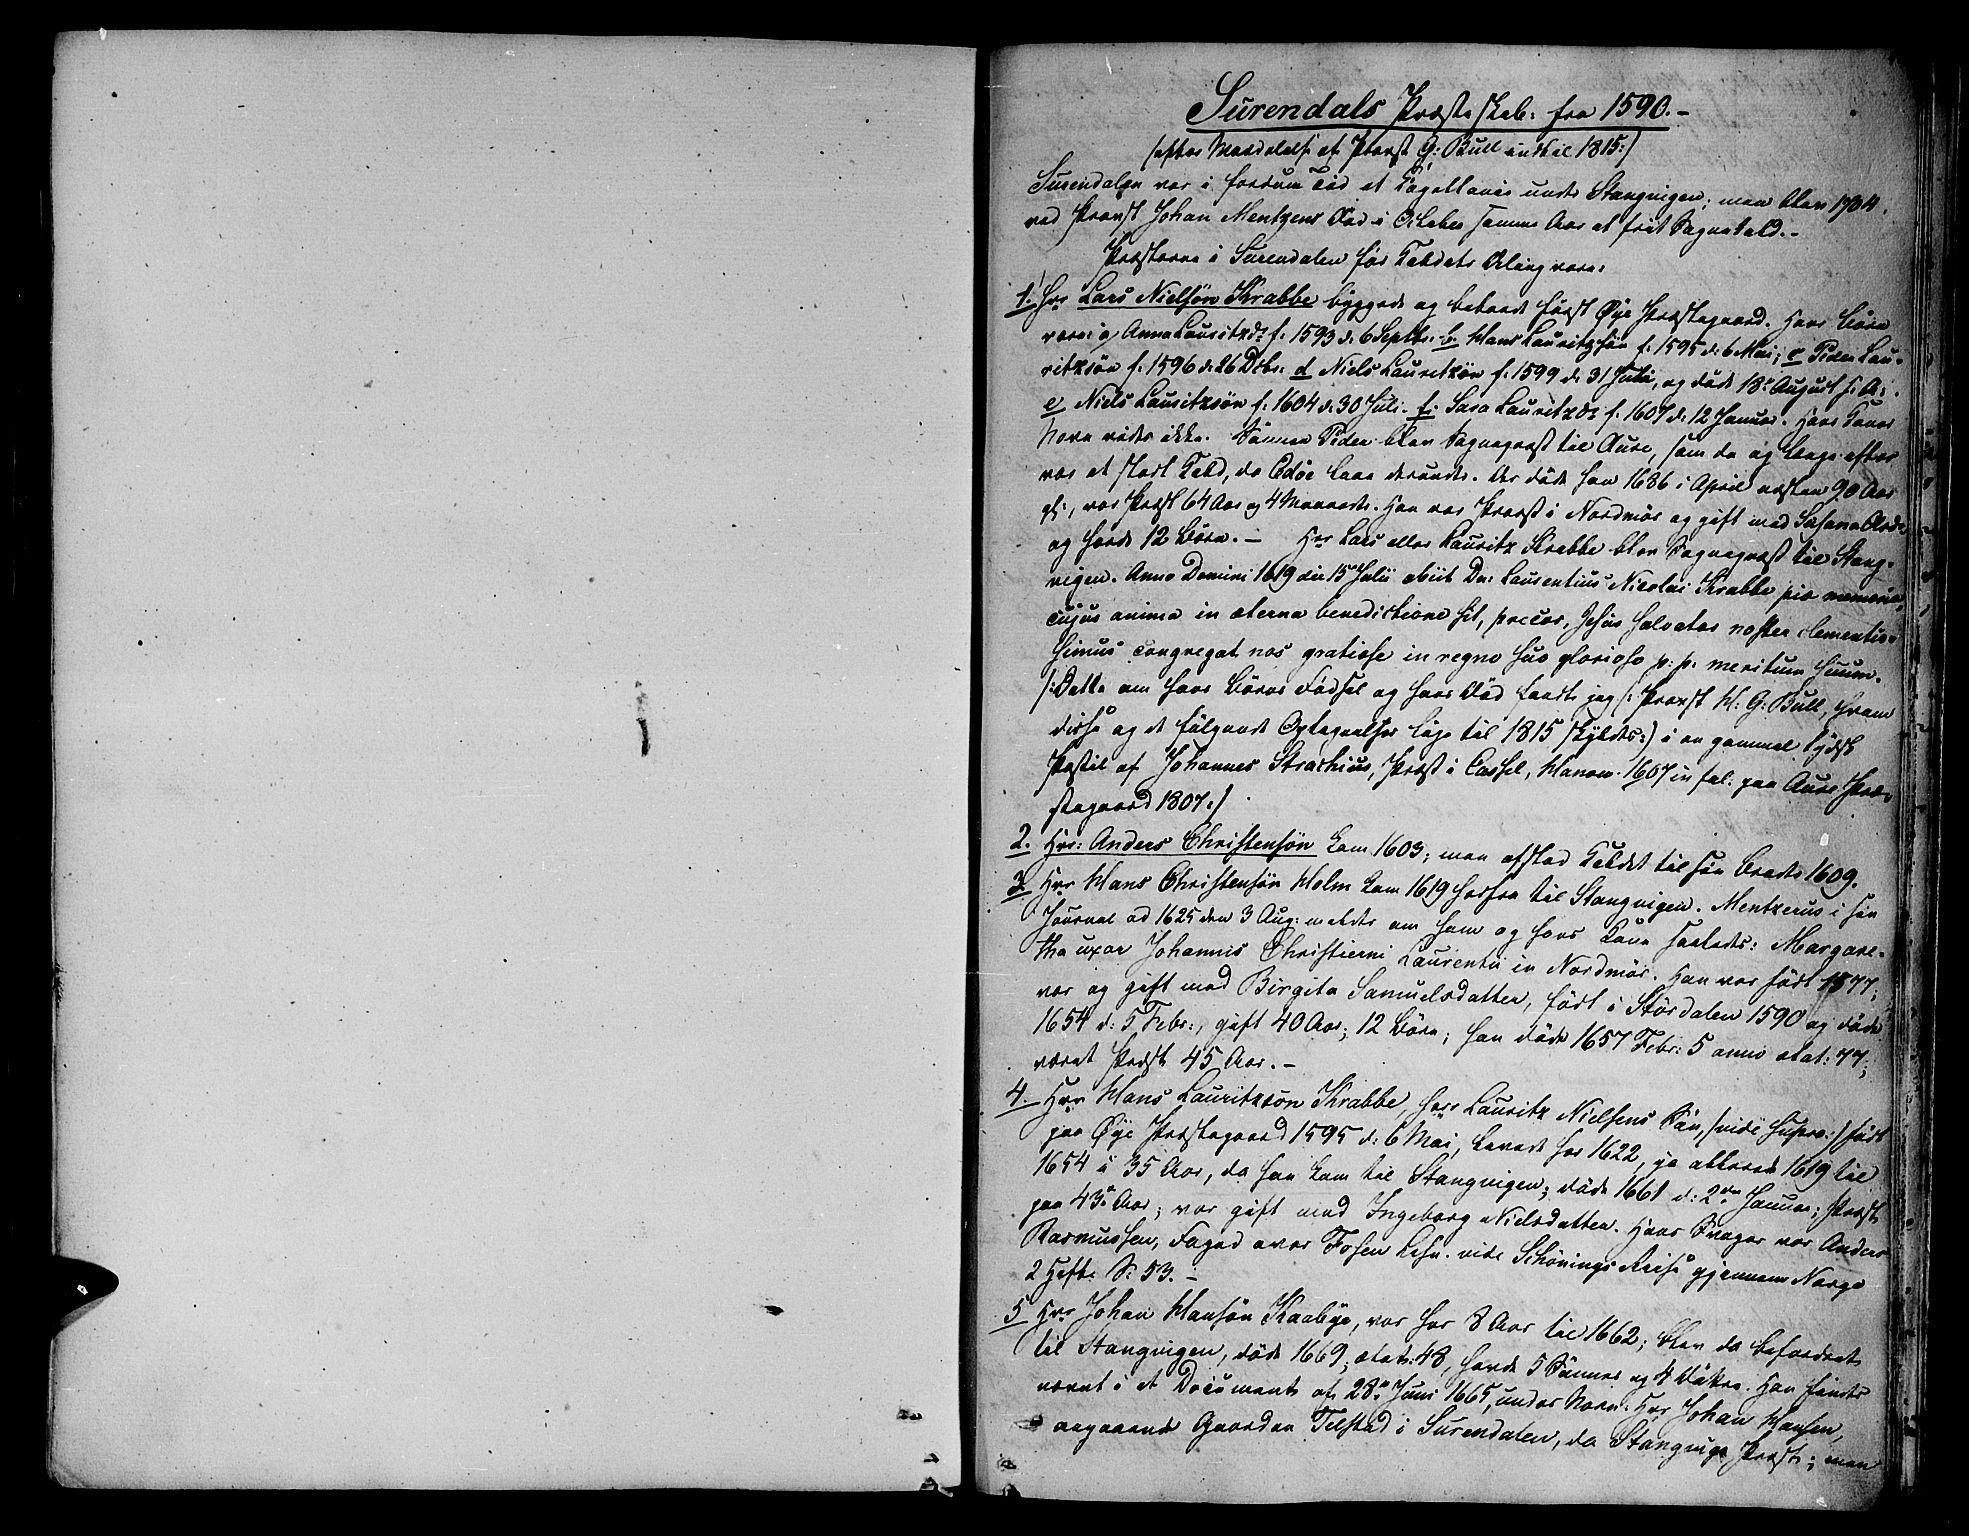 Surendals Præsteskab: fra 1590.-
/:efter Meddelelse af Provst G: Bull indtil 1815:/
Surendalen var i fordum Tid et Capellanie under Stangvigen; men blev 1734
ved Provst Johan Mentzens Død i October samme Aar et frit Sognekald.-
Præsterne i Surendalen før Kaldets Deling vare:
1. Hr Lars Nielsön Krabbe byggede og beboede først Øye Præstegaard. Hans Börn
vare: a Anna Lauritzdr f. 1593 d. 6 Septbr: b. Hans Lauritzsön f. 1595 d: 6 Mai; c Peder Lau-
ritzsön f. 1596 d: 26 Dcbr: d Niels Lauritzön f. 1599 d: 31 Juli, og døde 18de August s. A:
e Niels Lauritzsön f. 1604 d. 30 Juli. f. Sara Lauritzdr f. 1607 d: 12 Januar. Hans Kones
Navn vides ikke. Sønnen Peder blev Sognepræst til Aure, som da og længe efter
var et stort Kald, da Edöe laae derunder. Der døde han 1686 i April næsten 90 Aar
gl:, var Præst 64 Aar og 4 Maaneder. Han var Provst i Nordmör og gift med Susanna
og havde 12 Börn.- Hr Lars eller Lauritz Krabbe blev Sognepræst til Stang-
vigen. Anno Domini 1619 die 15 Julii obiit Dn: Laurentius Nicolai Krabbe piæ memoriæ,
cujus anima in æterna benedictione sit, precor, Jesus Salvator noster clementis-
simus congregat nos gratiose in regno suo glorioso p: p: meritum suum.
/:Dette om hans Börns Fødsel og hans Død fandt jeg (: Provst H: G: Bull, hvem
disse og de følgende Optegnelser lige til 1815 skyldes:) i en gammel tydsk
Postil af Johannes Strachius, Præst i Cassel, Hanow. 1607 in fol. paa Aure Præ-
stegaard 1807:/
2. Hr: Anders Christensön kom 1603; men afstod Kaldet til sin Broder 1609.
3 Hr Hans Christensön Holm kom 1619 herfra til Stangvigen. Mentzerus i sin
Journal ad 1625 den 3 Aug: melder om ham og hans Kone saaledes: Margare-
tha uxor Johannis Christierni Laurentii in Nordmör. Han var født 1577;
var og gift med Birgita Samuelsdatter, født i Stördalen 1590 og døde
1654 d: 5 Febr:, gift 40 Aar; 12 Börn; han døde 1657 Febr: 5 anno ætat: 77;
været Præst 45 Aar.-
4. Hr Hans Lauritzsön Krabbe, Hr Lauritz Nielsens Søn, /vide supra:/ født
paa Øye Præstegaard 1595 d: 6 Mai, levede her 1622, ja allerede 1619 til
1654 i 35 Aar, da han kom til Stangvigen; døde 1661 d: 2den Januar; Præst
paa 43de Aar; var gift med Ingeborg Nielsdatter. Hans Svoger var Anders
Rasmussen, Foged over Fosen Lehn. vide Schönings Reise gjennem Norge
2 Hefte S: 53.-
5 Hr Johan Hansön Kaabye, var her 8 Aar til 1662; blev da befordret
til Stangvigen, døde 1669; ætat: 48, havde 5 Sønner og 4 Døtre. Han findes
nævnt i et Document af 28de Juni 1665, under Navn: Hr Johan Hansen,
angaaende Gaarden Telstad i Surendalen, da Stangvigs Præst; men